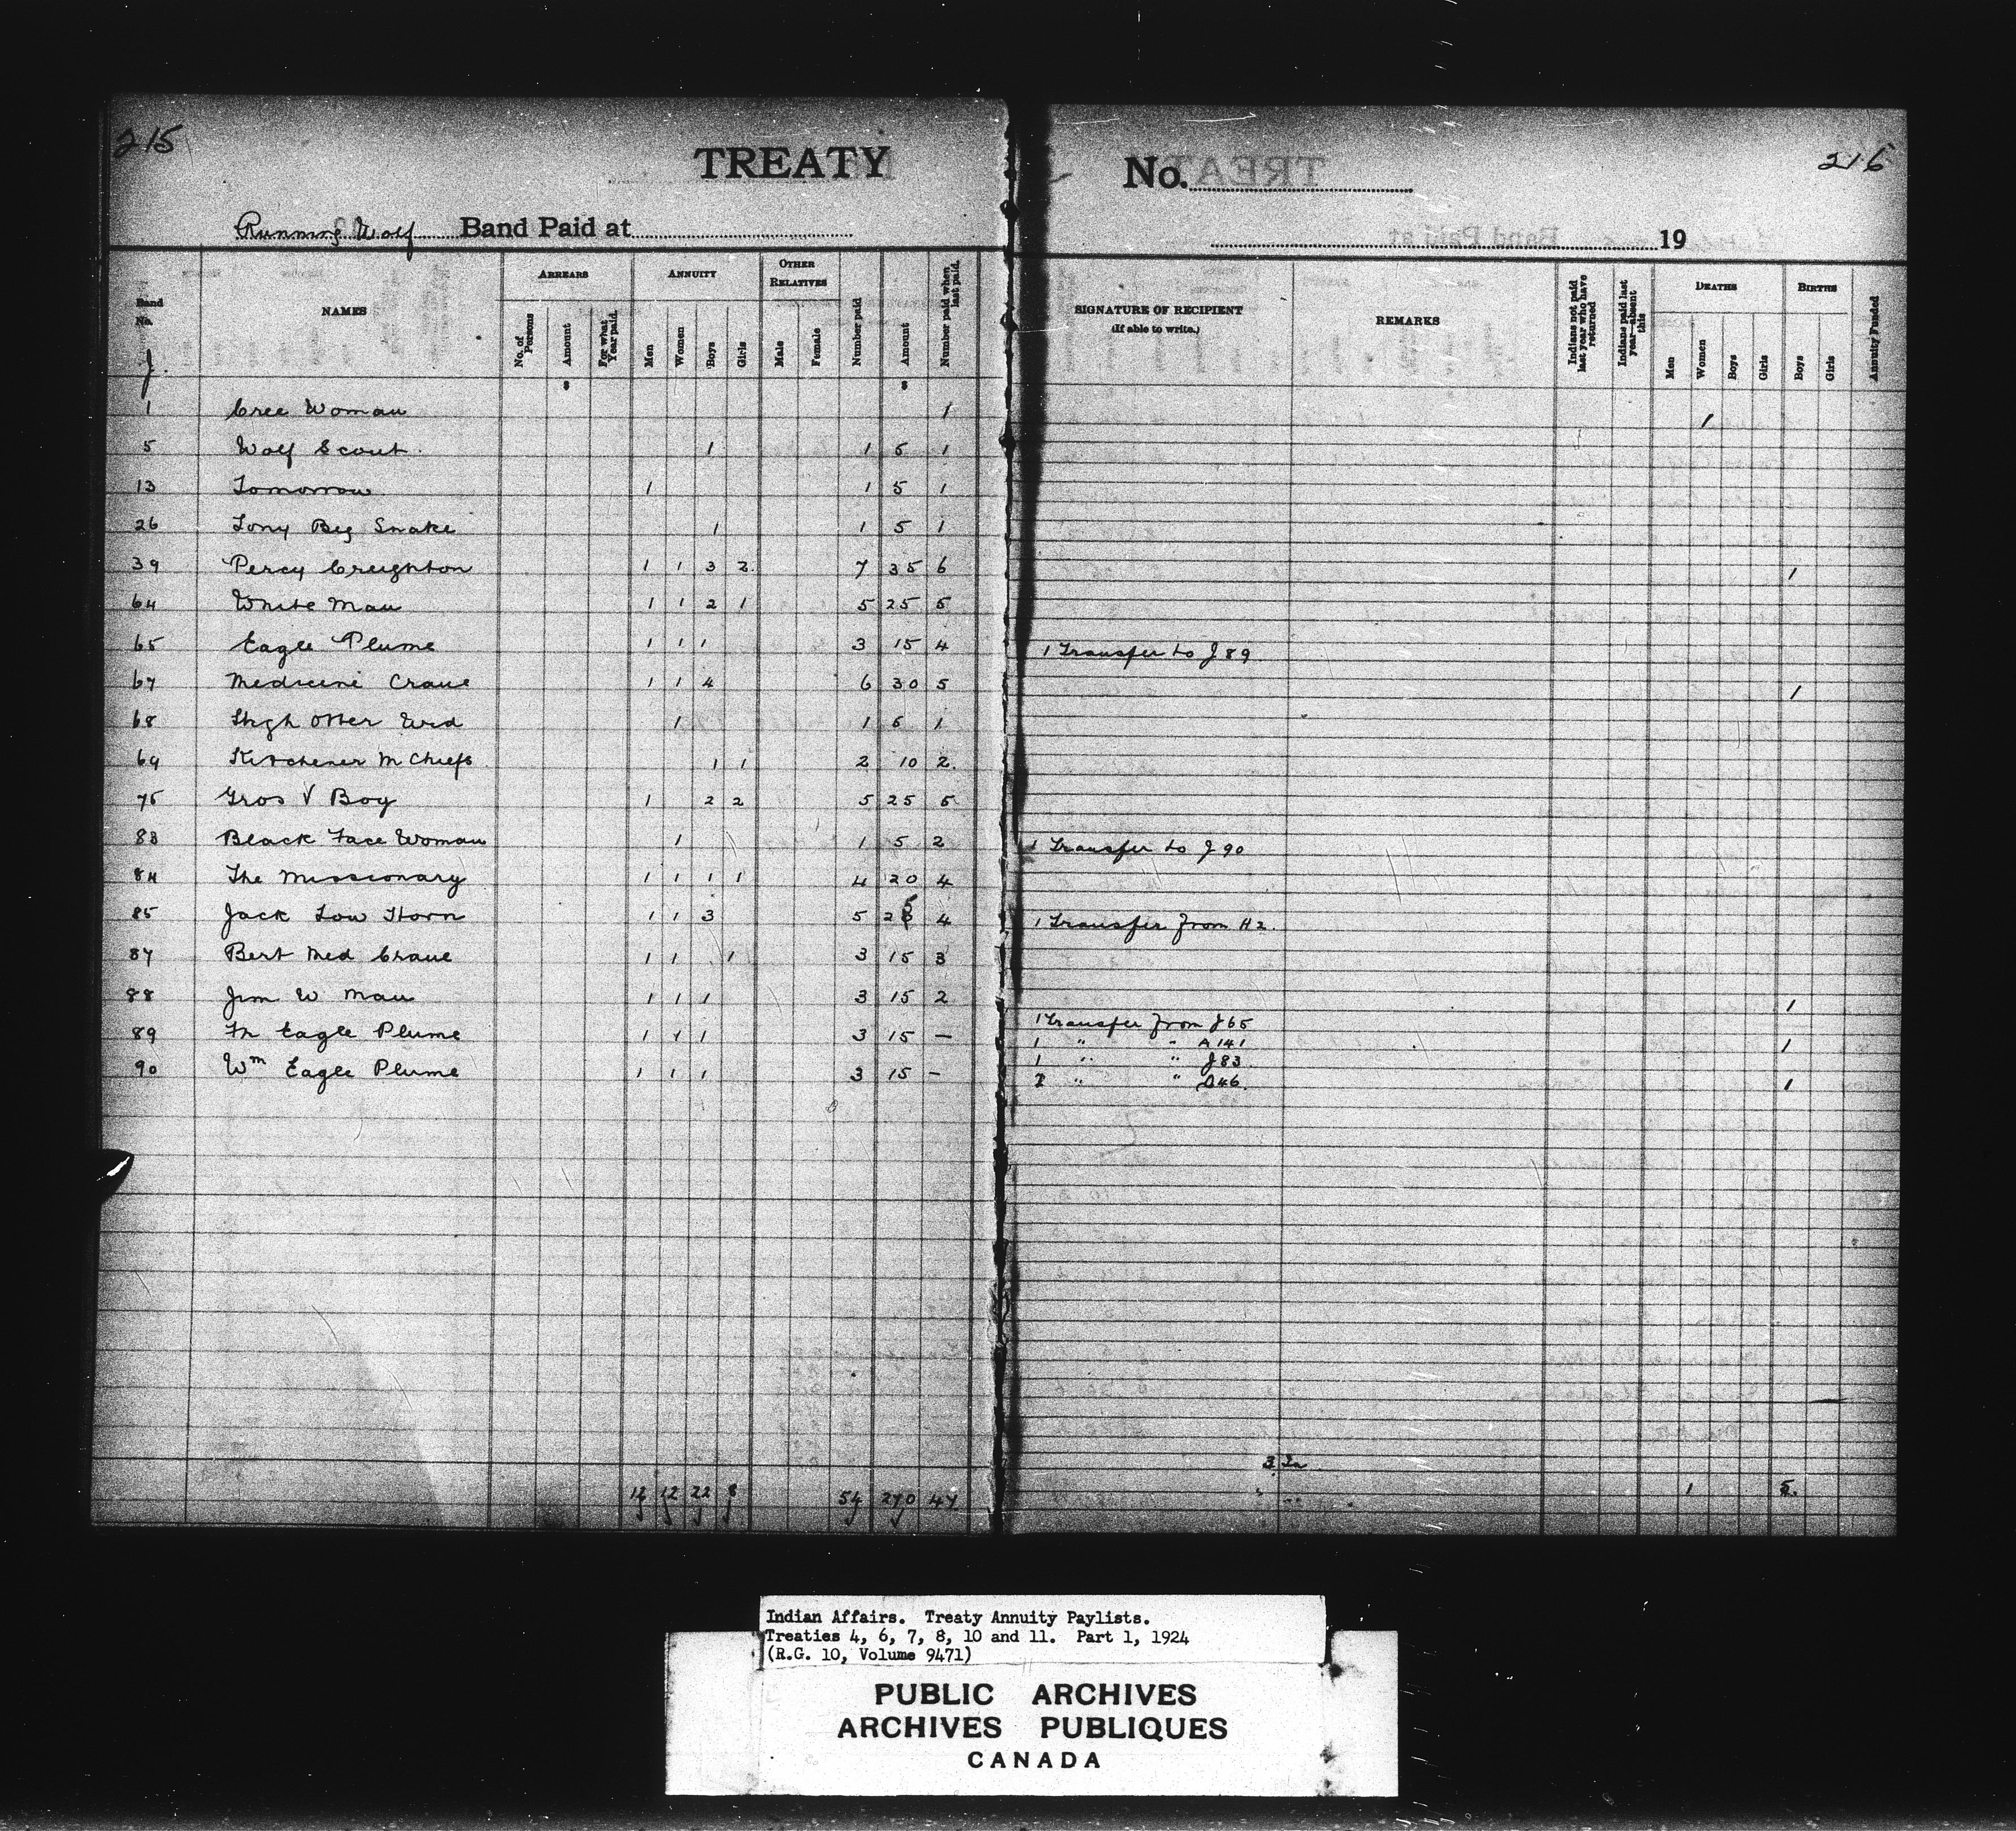 215
TREATY No. 216
Running Wolf Band Paid at 19
Band No. NAMES ARREARS ANNUITY OTHER RELATIVES Number paid Amount Number paid when last paid. SIGNATURE OF RECIPIENT (If able to write.) REMARKS Indians not paid last year who have returned Indians paid last year—absent this DEATHS BIRTHS Annuity Funded
No. of Persons Amount For what Year paid. Men Women Boys Girls Male Female Men Women Boys Girls Boys Girls
J.
1 Cree Woman 1 1
5 Wolf Scout 1 1 5 1
13 Tomorrow 1 1 5 1
26 Tony Big Snake 1 1 5 1
39 Percy Creighton 1 1 3 2 7 35 6 1
64 White Man 1 1 2 1 5 25 5
65 Eagle Plume 1 1 1 3 15 4 1 Transfer to J 89
67 Medicine Crane 1 1 4 6 30 5 1
68 High Otter Wid 1 1 5 1
69 Kitchener M Chiefs 1 1 2 10 2
75 Gros V Boy 1 2 2 5 25 5
83 Black Face Woman 1 1 5 2 1 Transfer to J 90
84 The Missionary 1 1 1 1 4 20 4
85 Jack Low Horn 1 1 3 5 25 4 1 Transfer from H2.
87 Bert Med Crane 1 1 1 3 15 3
88 Jim W Man 1 1 1 3 15 2 1
89 Eagle Plume 1 1 1 3 15 — 1 Transfer from J 65
1 " " A 141 1
90 Wm Eagle Plume 1 1 1 3 15 - 1 " " J 83
" " D46. 1
3
12 12 22 8 54 270 47 1 5.
Indian Affairs. Treaty Annuity Paylists.
Treaties 4, 6, 7, 8, 10 and 11. Part 1, 1924
(R.G. 10, Volume 9471)
PUBLIC ARCHIVES
ARCHIVES PUBLIQUES
CANADA